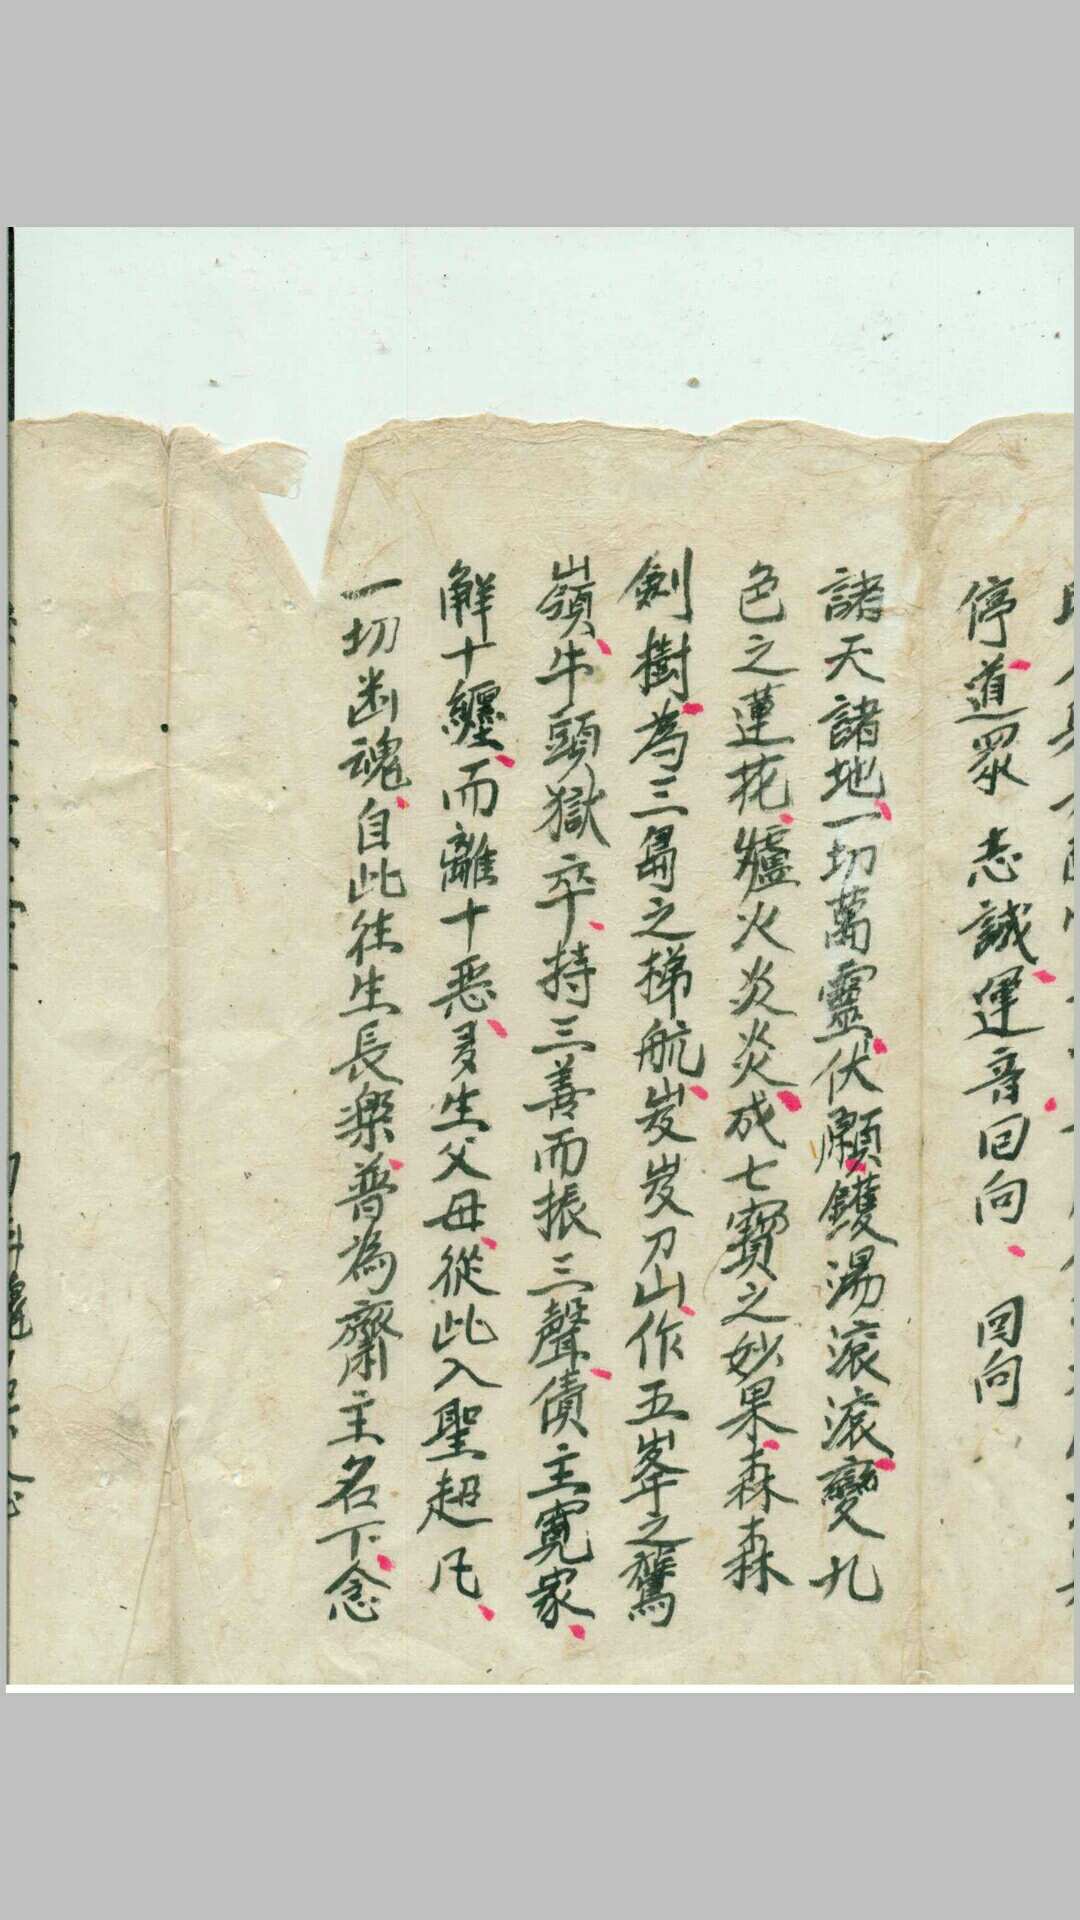 停、道眾 志誠、運音回向、回向
諸天諸地、一切萬靈、伏願、鑊湯滾滾、變九
色之蓮花、爐火炎炎、成七寶之妙果、森森
劍樹、為三島之梯航、岌岌刀山、作五峯之鷲
嶺、牛頭獄卒、持三善而振三聲、債主冤家、
解十纏、而離十惡、多生父母、從此入聖超凡、
一切幽魂、自此往生長樂、普為齋主名下、念